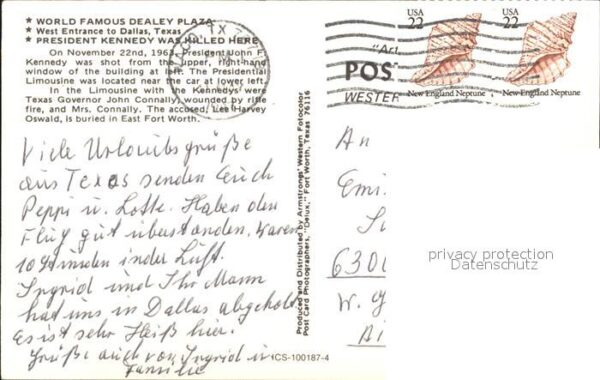 ★ WORLD FAMOUS DEALEY PLAZA
★ West Entrance to Dallas, Texas
★ PRESIDENT KENNEDY WAS KILLED HERE
On November 22nd, 1963, President John F.
Kennedy was shot from the upper, right-hand
window of the building at left. The Presidential
Limousine was located near the car at lower left.
In the Limousine with the Kennedys were
Texas Governor John Connally, wounded by rifle
fire, and Mrs. Connally. The accused, Lee Harvey
Oswald, is buried in East Fort Worth.
Viele Urlaubsgrüße
aus Texas senden Euch
Peppi u. Lotte. Haben den
Flug gut überstanden, waren
10 Stunden in der Luft.
Ingrid und Ihr Mann
hat uns in Dallas abgeholt
Es ist sehr Heiß hier.
Grüße auch von Ingrid u
Familie
Produced and Distributed by Armstrongs' Western Fotocolor
Post Card Photographers, "Delux," Fort Worth, Texas 76116
ICS-100187-4
TX
POS
WESTER
USA
22
New England Neptune
USA
22
New England Neptune
An
Emi
630
W. G
privacy protection
Datenschutz